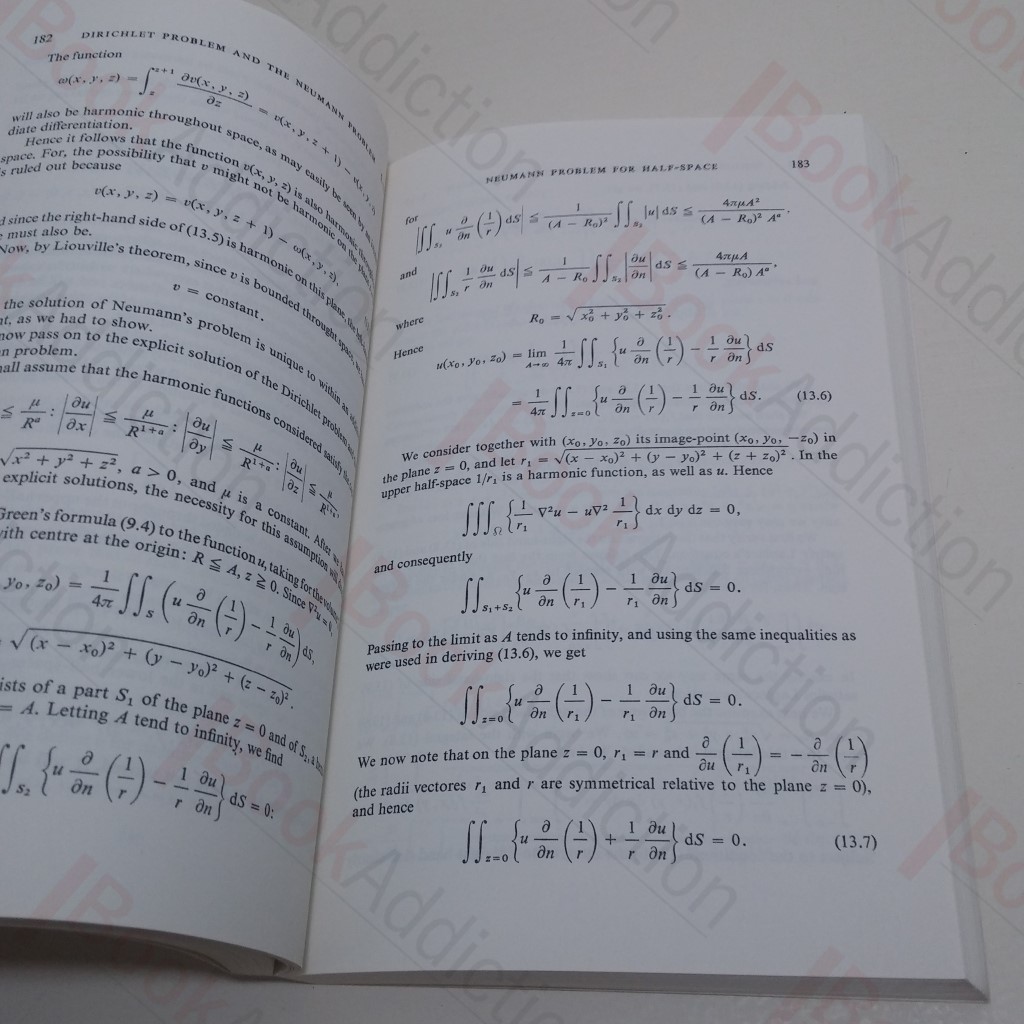 182 DIRICHLET PROBLEM AND THE NEUMANN PROBLEM
The function
ω(x, y, z) = ∫_z^{z+1} ∂v(x, y, z)/∂z = v(x, y, z + 1) − v(x, y, z)
will also be harmonic throughout space, as may easily be seen by
diate differentiation.
Hence it follows that the function v(x, y, z) is also harmonic
space. For, the possibility that v might not be harmonic on the
s ruled out because
v(x, y, z) = v(x, y, z + 1) − ω(x, y, z),
since the right-hand side of (13.5) is harmonic on this plane, the
must also be.
Now, by Liouville's theorem, since v is bounded throught space,
v = constant.
the solution of Neumann's problem is unique to within an
nt, as we had to show.
now pass on to the explicit solution of the Dirichlet problem
n problem.
all assume that the harmonic functions considered satisfy
≦ μ/R^a : |∂u/∂x| ≦ μ/R^{1+a} : |∂u/∂y| ≦ μ/R^{1+a} : |∂u/∂z| ≦ μ/R^{1+a}
√(x² + y² + z²), a > 0, and μ is a constant. After
explicit solutions, the necessity for this assumption will
Green's formula (9.4) to the function u, taking for the
with centre at the origin: R ≦ A, z ≧ 0. Since ∇²u = 0,
y₀, z₀) = 1/4π ∬_S (u ∂/∂n (1/r) − 1/r ∂u/∂n) dS,
= √((x − x₀)² + (y − y₀)² + (z − z₀)²).
ists of a part S₁ of the plane z = 0 and of S₂,
= A. Letting A tend to infinity, we find
∬_{S₂} {u ∂/∂n (1/r) − 1/r ∂u/∂n} dS = 0:
NEUMANN PROBLEM FOR HALF-SPACE 183
for
|∬_{S₂} u ∂/∂n (1/r) dS| ≦ 1/(A − R₀)² ∬_{S₂} |u| dS ≦ 4πμA²/((A − R₀)² A^a),
and
|∬_{S₂} 1/r ∂u/∂n dS| ≦ 1/(A − R₀) ∬_{S₂} |∂u/∂n| dS ≦ 4πμA/((A − R₀) A^a),
where
R₀ = √(x₀² + y₀² + z₀²).
Hence
u(x₀, y₀, z₀) = lim_{A→∞} 1/4π ∬_{S₁} {u ∂/∂n (1/r) − 1/r ∂u/∂n} dS
= 1/4π ∬_{z=0} {u ∂/∂n (1/r) − 1/r ∂u/∂n} dS. (13.6)
We consider together with (x₀, y₀, z₀) its image-point (x₀, y₀, −z₀) in
the plane z = 0, and let r₁ = √((x − x₀)² + (y − y₀)² + (z + z₀)²). In the
upper half-space 1/r₁ is a harmonic function, as well as u. Hence
∭_Ω {1/r₁ ∇²u − u∇² 1/r₁} dx dy dz = 0,
and consequently
∬_{S₁+S₂} {u ∂/∂n (1/r₁) − 1/r₁ ∂u/∂n} dS = 0.
Passing to the limit as A tends to infinity, and using the same inequalities as
were used in deriving (13.6), we get
∬_{z=0} {u ∂/∂n (1/r₁) − 1/r₁ ∂u/∂n} dS = 0.
We now note that on the plane z = 0, r₁ = r and ∂/∂u (1/r₁) = − ∂/∂n (1/r)
(the radii vectores r₁ and r are symmetrical relative to the plane z = 0),
and hence
∬_{z=0} {u ∂/∂n (1/r) + 1/r ∂u/∂n} dS = 0. (13.7)
BookAddiction